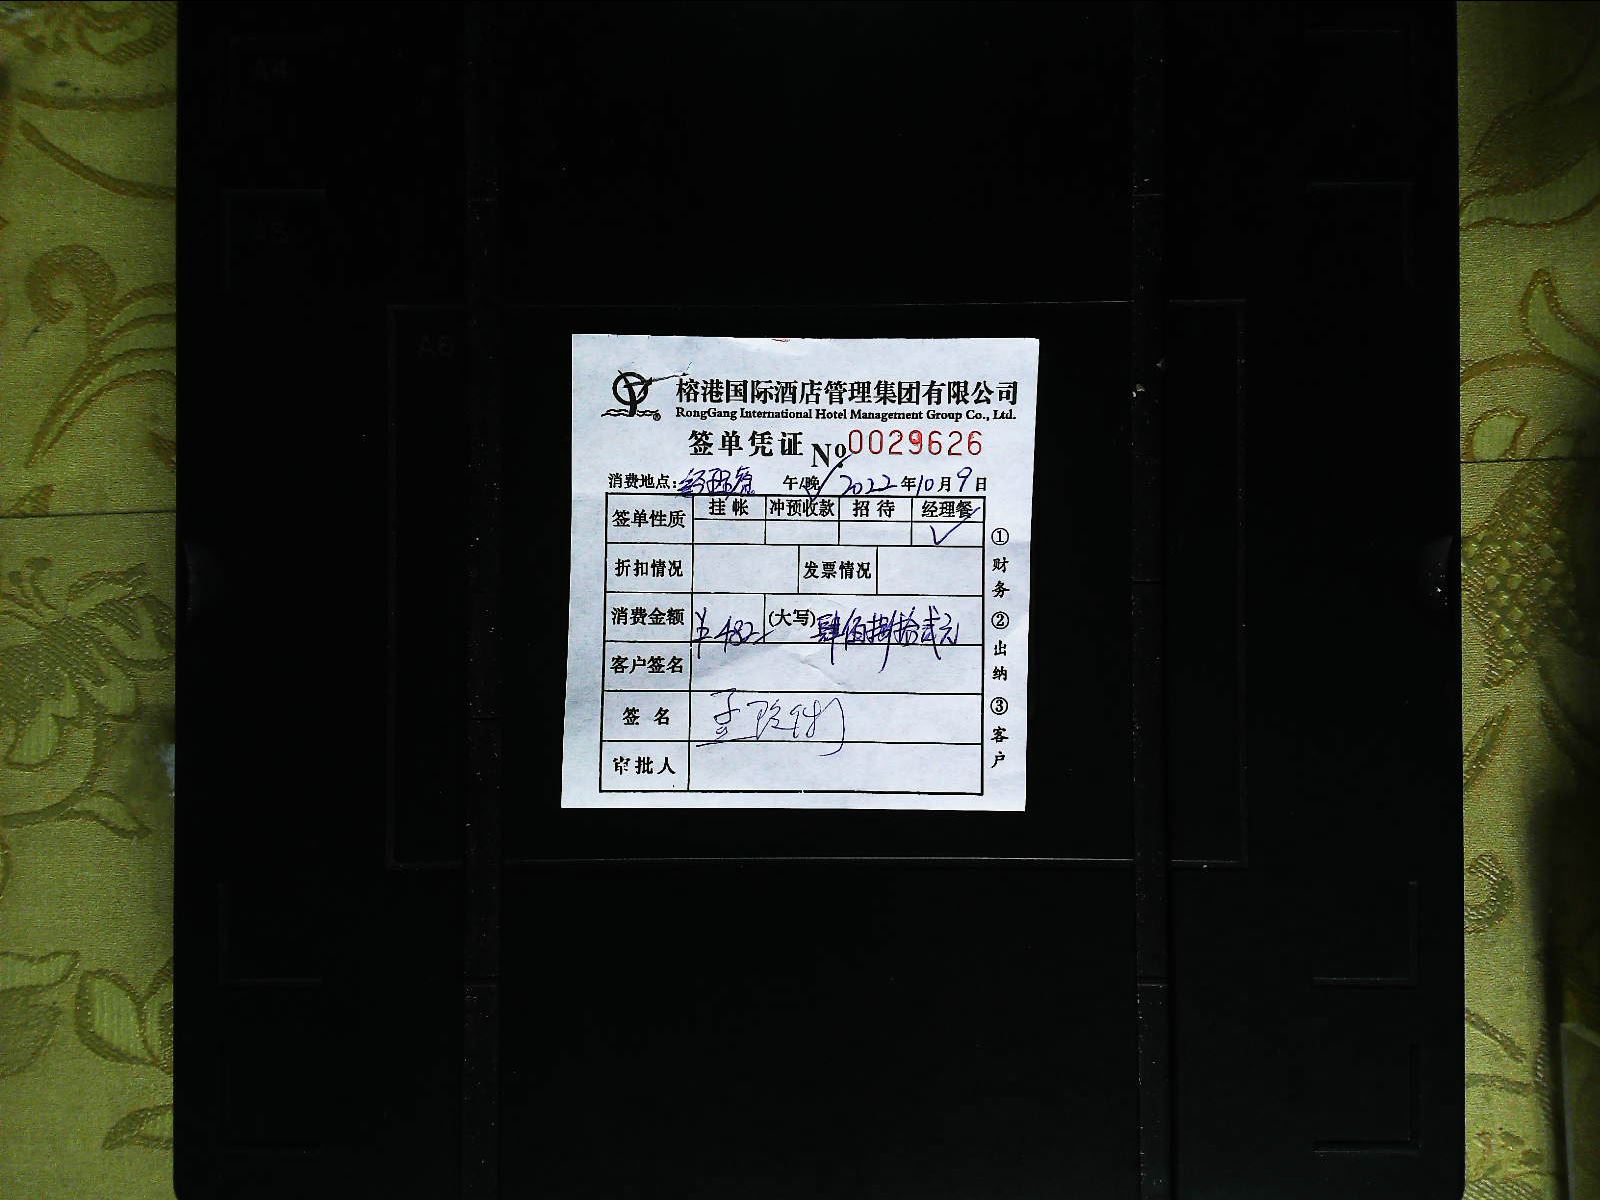 榕港国际酒店管理集团有限公司
RongGang International Hotel Management Group Co., Ltd.
签单凭证 Nº 0029626
消费地点: 经理餐 午/晚 2022年10月9日
签单性质 挂帐 冲预收款 招待 经理餐
✓
折扣情况 发票情况
消费金额 ¥482 (大写) 肆佰捌拾贰元
客户签名
签名 孟
审批人
①财务 ②出纳 ③客户
A6